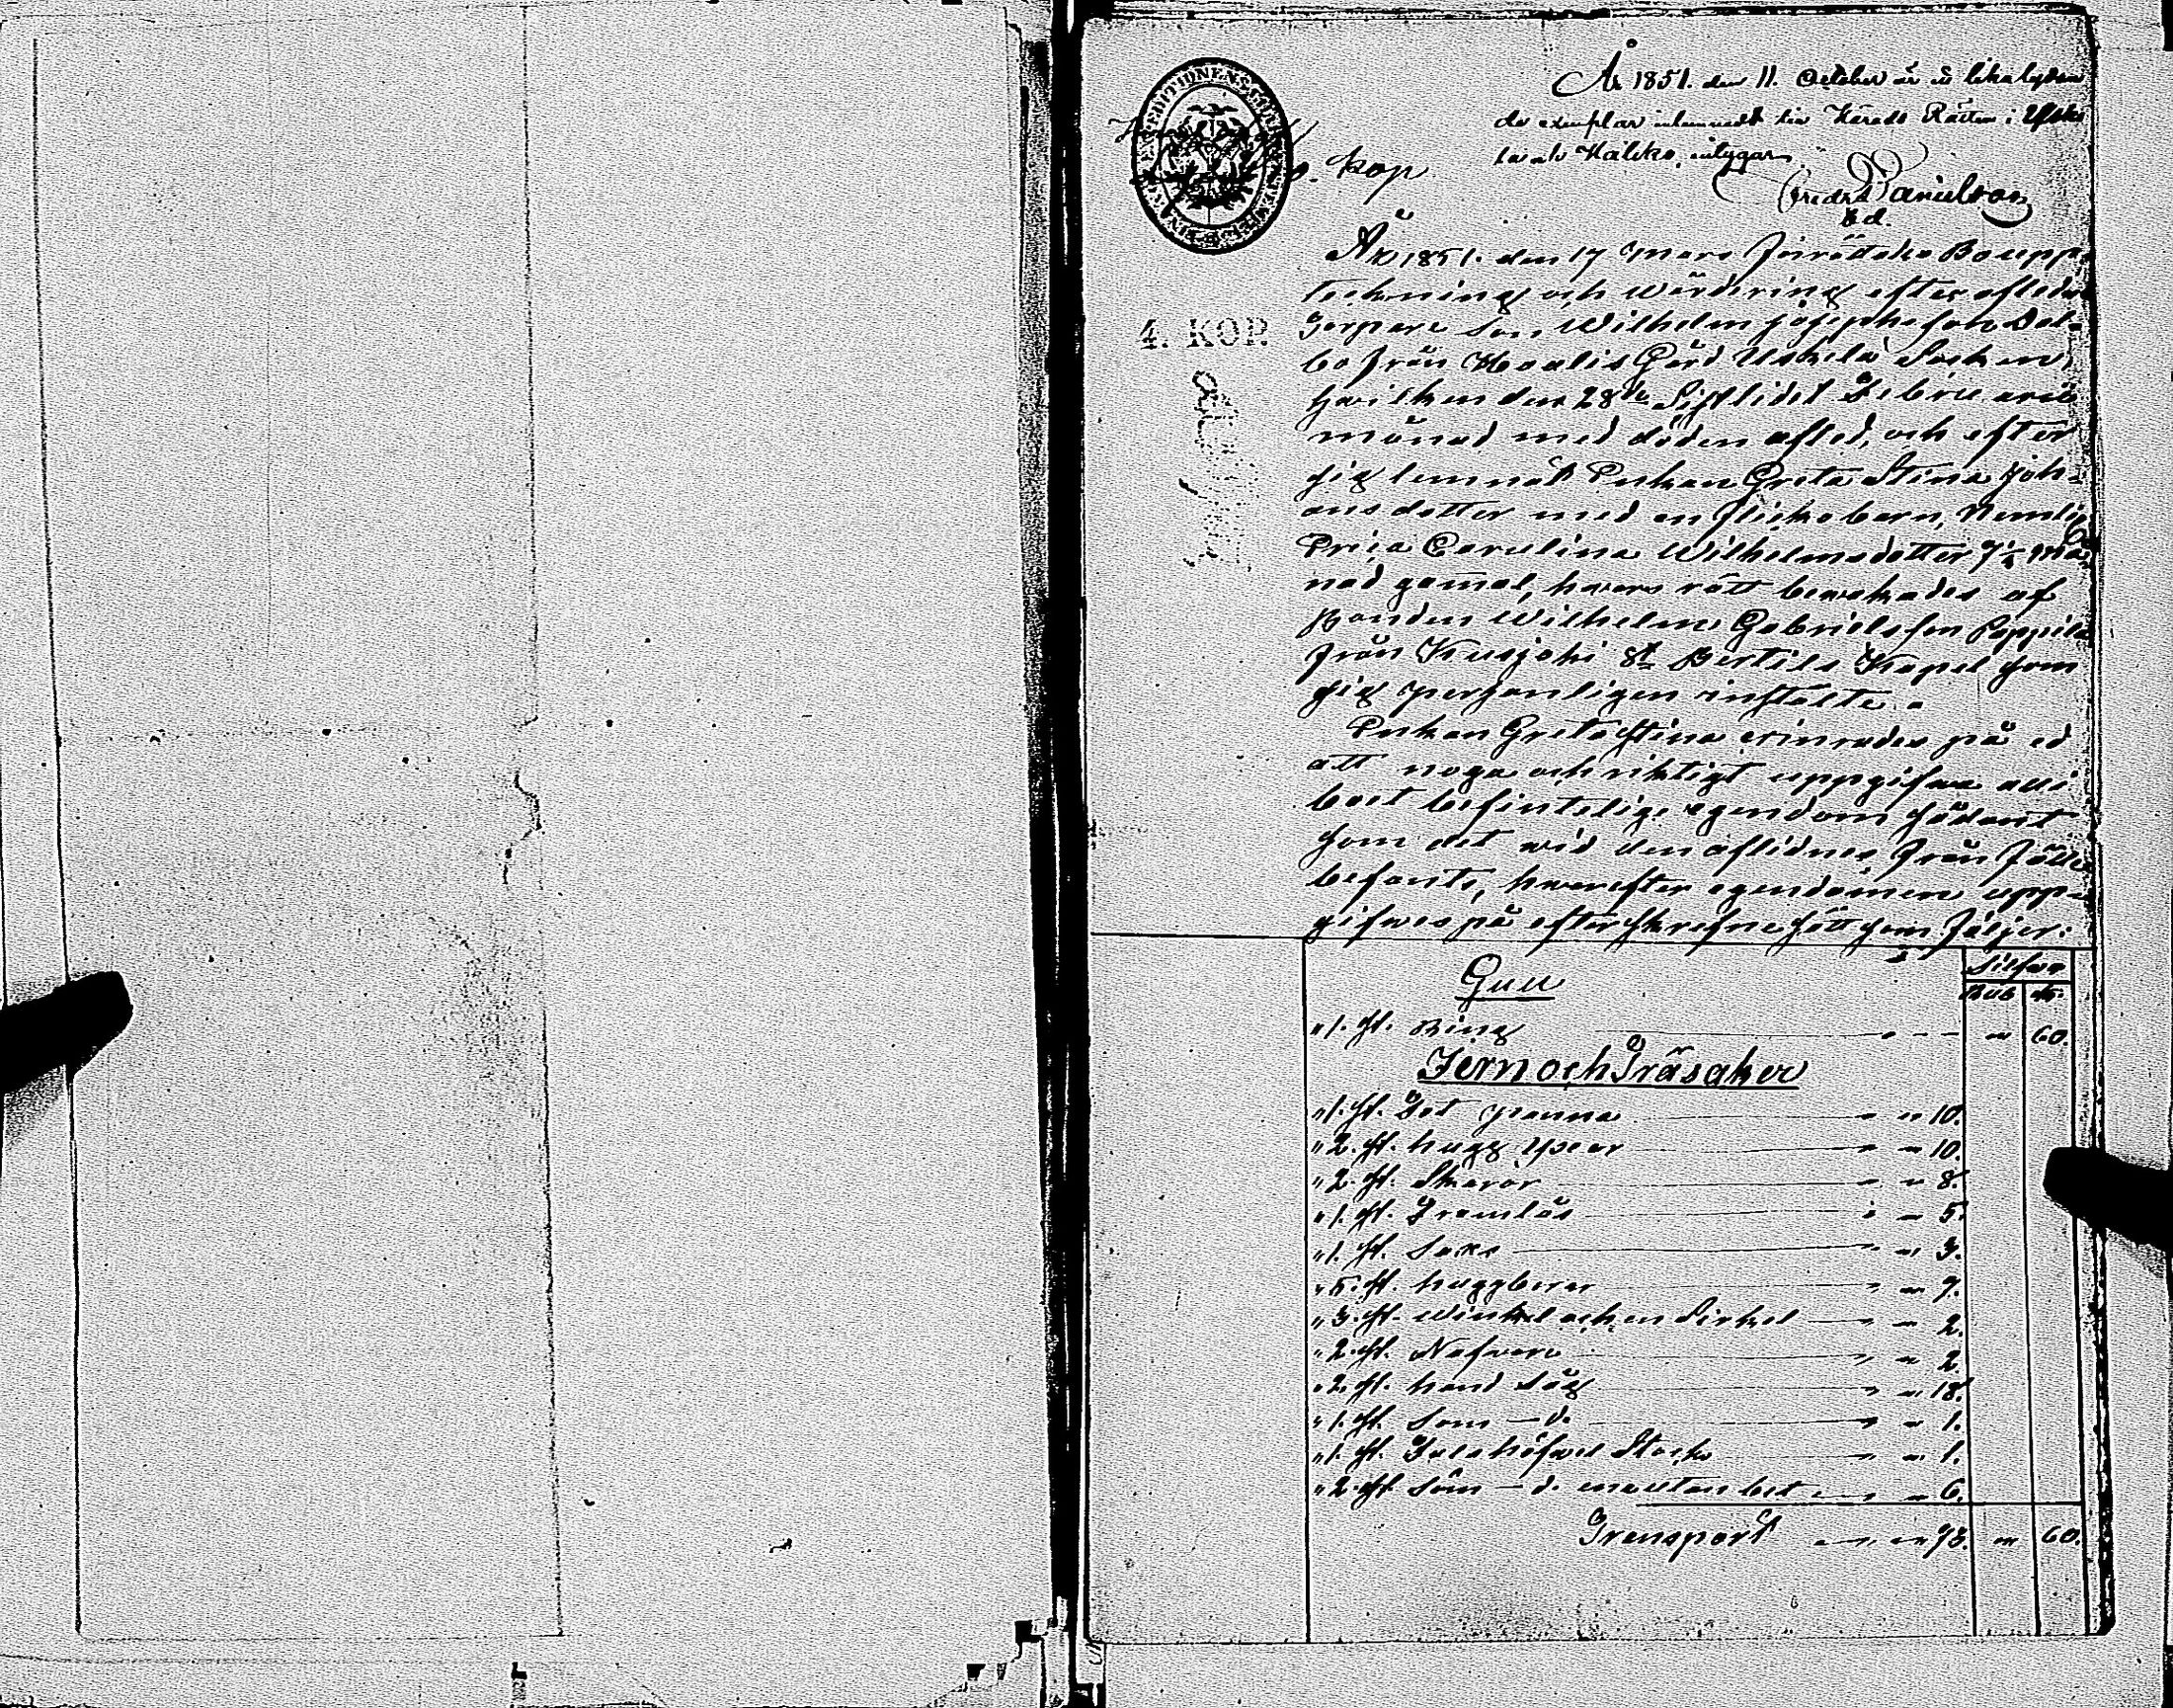 År 1851. den 11. October är et lika lydan
de exemplar inlemnadt till Härads Rätten i Uske
la och Haliko, intygar
Fredrd Danielson
Ed.
kop
År 1851. den 17 Mars förrättades Boupp-
teckning och wärdering efter afledne
Torpare Son Wilhelm Josephsson Dal-
bo från Moalis Gård Uskela Socken,
hwilken den 28de Sistlidet Februarii
månad med döden afled, och efter
sig lemnat Enkan Greta Stina Joh-
ans dotter med en flicko barn, Nemlig
Erica Carolina Wilhelmsdotter 7½ må-
nad gamal, hwars rätt bewakades af
Bonden Wilhelm Gabrielsson Pappila
från Kusjoki St Bertils Kapel som
sig personligen instälte.
Enkan Greta Stina erinrades på ed
att noga och riktigt uppgifwa all i
boet befintelige egendom sådant
som det wid den aflidnes från fälle
befants, hwarefter egendomen upp-
gifwes på efterskrefne sätt som följer:
4. KOP.
Silfwer
Gull
Rub k.
"1. st. Ring " 60.
Jern och Träsaker
"1. st. Jot panna " " 10.
"2. st. hugg yxor " " 10.
"2. st. Skaror " " 8.
"1. st. Framlås " " 5.
"1. st. Saxe " " 3.
"5. st. huggberar " " 7.
"3. st. Winkel och en Sirkel " " 2.
"2. st. Nafware " " 2.
"2. st. hand såg " " 18.
"1. st. Som — d. " " 1.
"1. st. Stock " " 1.
"2. st. Söm — d. utan bet " " 6.
Transport " " 73. " 60.